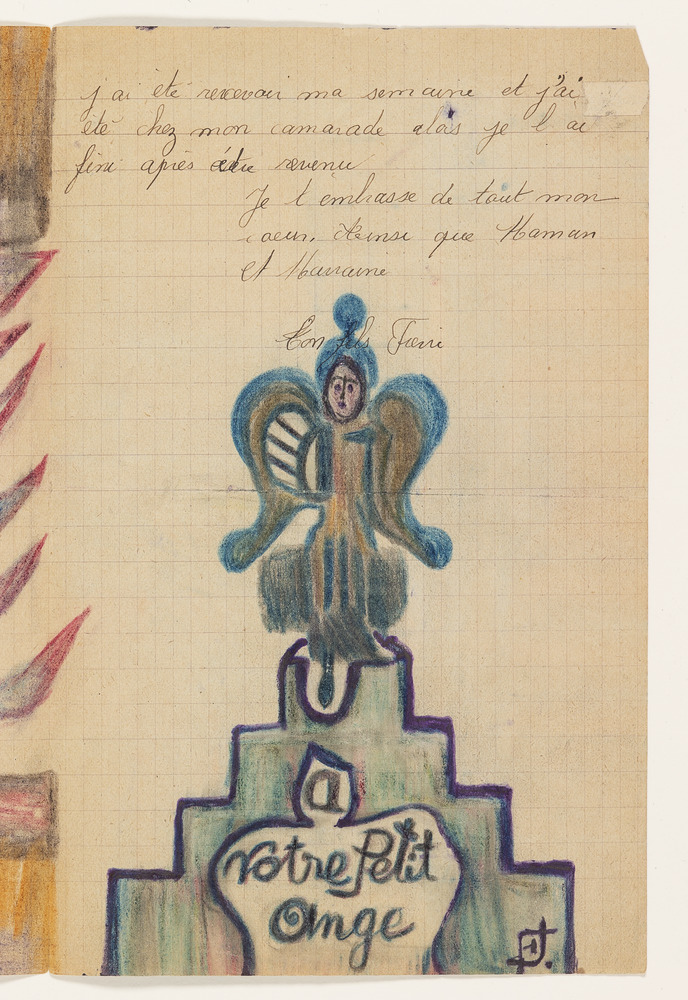 j ai été recevoir ma semaine et j'ai
été chez mon camarade alors je l ai
fini après être revenu
Je t embrasse de tout mon
coeur. Ainsi que Maman
et Marraine
Ton fils
a
Votre Petit
Ange